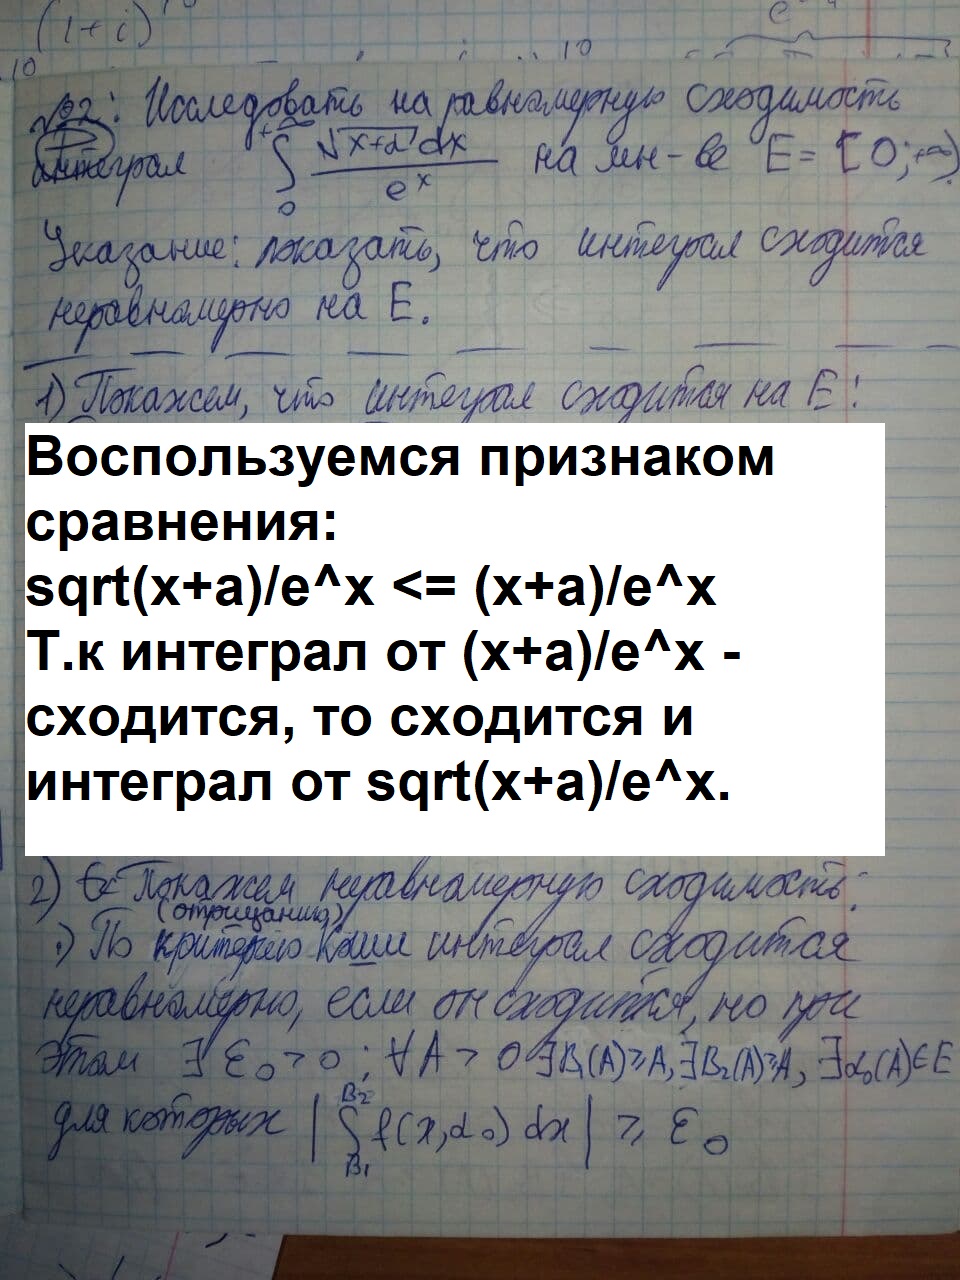 (1+i)¹⁰
e
10
10
№2: Исследовать на равномерную сходимость
интеграл ∫₀^{+∞} √(x+α) dx / eˣ на мн-ве E = [0; +∞).
Указание: показать, что интеграл сходится
неравномерно на E.
1) Покажем, что интеграл сходится на E:
Воспользуемся признаком
сравнения:
sqrt(x+a)/e^x <= (x+a)/e^x
Т.к интеграл от (x+a)/e^x -
сходится, то сходится и
интеграл от sqrt(x+a)/e^x.
2) Покажем неравномерную сходимость:
(отрицанию)
·) По критерию Коши интеграл сходится
неравномерно, если он сходится, но при
этом ∃ ε₀ > 0 : ∀A > 0 ∃B₁(A) ≥ A, ∃B₂(A) ≥ A, ∃α₀(A) ∈ E
для которых | ∫_{B₁}^{B₂} f(x, α₀) dx | ≥ ε₀